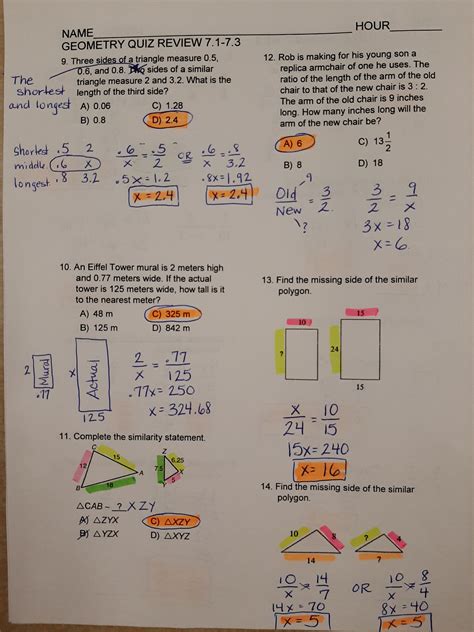 NAME HOUR
GEOMETRY QUIZ REVIEW 7.1-7.3
9. Three sides of a triangle measure 0.5,
0.6, and 0.8. sides of a similar
triangle measure 2 and 3.2. What is the
length of the third side?
The
shortest
and longest
A) 0.06 C) 1.28
B) 0.8 D) 2.4
shortest .5 2
middle .6 x
longest .8 3.2
.6/x = .5/2 OR .6/x = .8/3.2
.5x = 1.2 .8x = 1.92
x = 2.4 x = 2.4
10. An Eiffel Tower mural is 2 meters high
and 0.77 meters wide. If the actual
tower is 125 meters wide, how tall is it
to the nearest meter?
A) 48 m C) 325 m
B) 125 m D) 842 m
2 Mural .77
x Actual 125
2/x = .77/125
.77x = 250
x = 324.68
11. Complete the similarity statement.
C 15 12 A B 18
Z 6.25 7.5 X 5
△CAB ~ ? XZY
A) △ZYX C) △XZY
B) △YZX D) △XYZ
12. Rob is making for his young son a
replica armchair of one he uses. The
ratio of the length of the arm of the old
chair to that of the new chair is 3 : 2.
The arm of the old chair is 9 inches
long. How many inches long will the
arm of the new chair be?
A) 6 C) 13 1/2
B) 8 D) 18
Old/New = 3/2
9
?
3/2 = 9/x
3x = 18
x = 6
13. Find the missing side of the similar
polygon.
10 15
? 24
15
x/24 = 10/15
15x = 240
x = 16
14. Find the missing side of the similar
polygon.
10 8 ? 4
14 7
10/x = 14/7 OR 10/x = 8/4
14x = 70 8x = 40
x = 5 x = 5